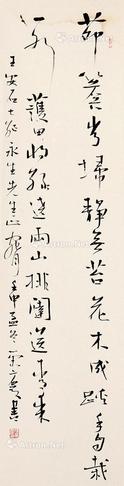 茆簷長掃靜無苔花木成蹊手自栽
一水護田將綠遶兩山排闥送青來
王安石 永生先生正 壬申孟冬 書